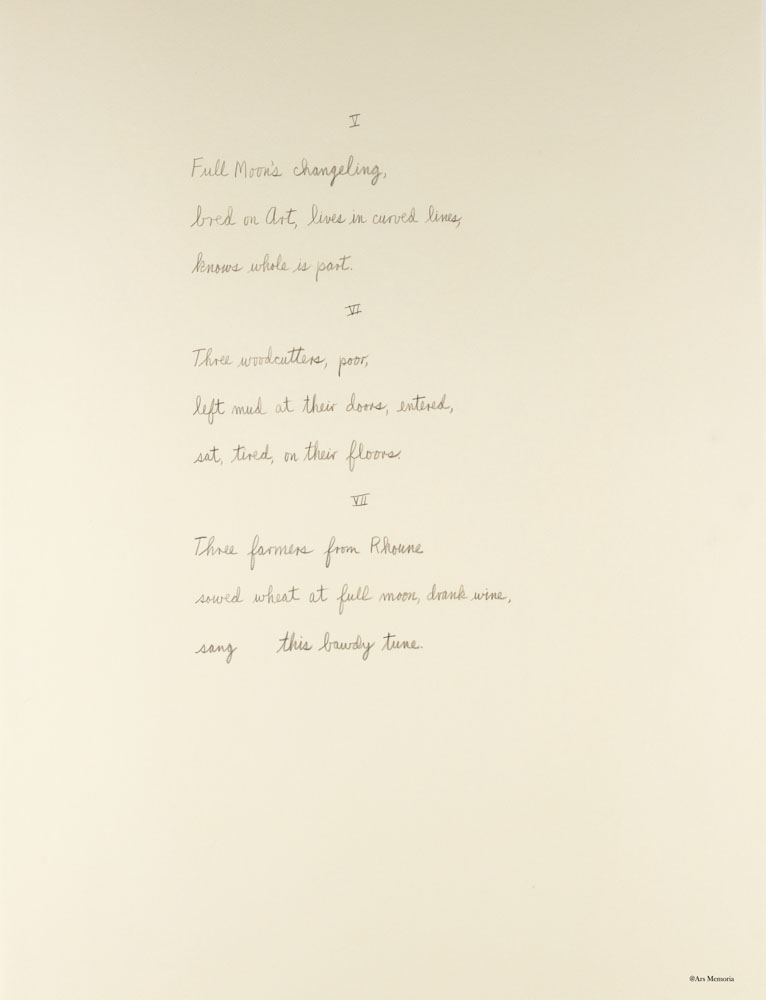 V
Full Moon's changeling,
bred on Art, lives in curved lines,
knows whole is part.
VI
Three woodcutters, poor,
left mud at their doors, entered,
sat, tired, on their floors.
VII
Three farmers from Rhoune
sowed wheat at full moon, drank wine,
sang this bawdy tune.
@Ars Memoria